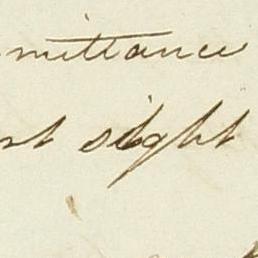 mittance
st sight